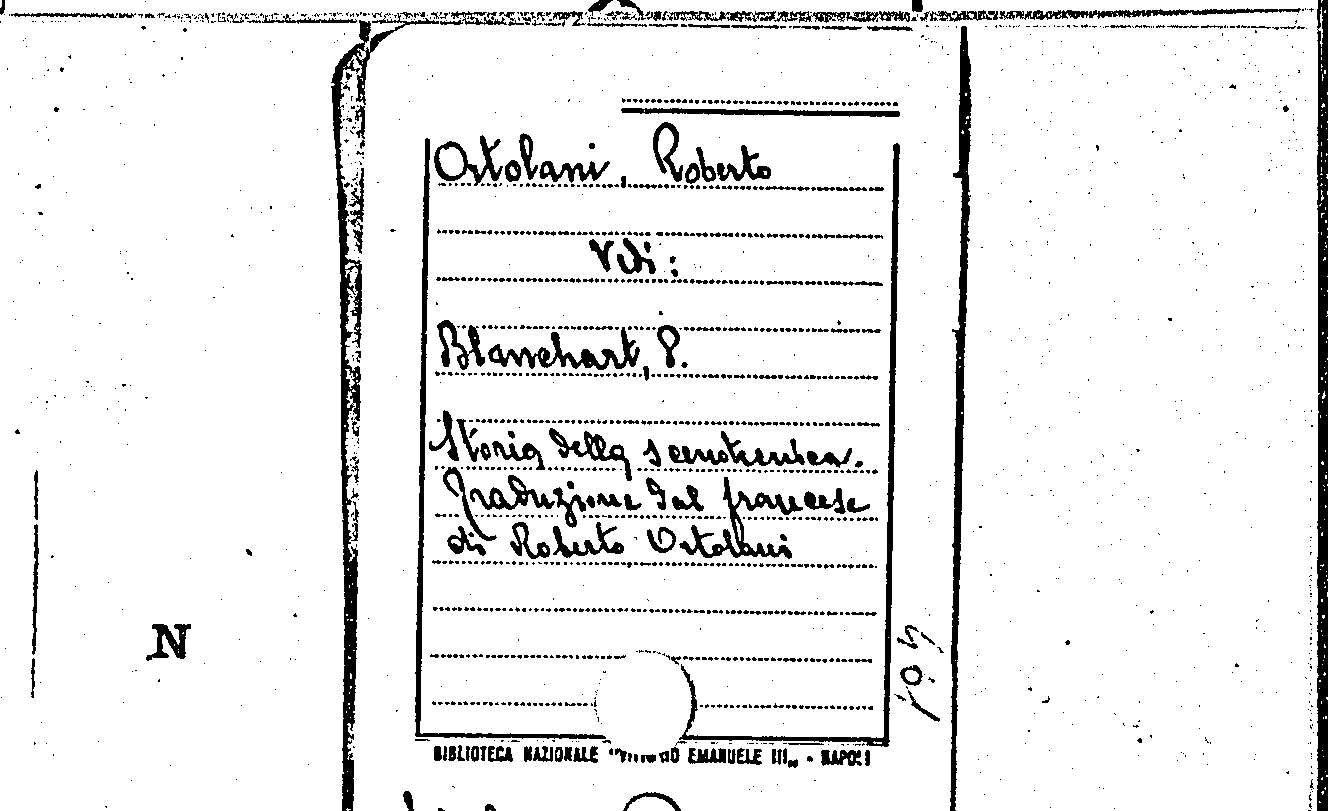 Ortolani, Roberto
Vedi:
Blanchart, P.
Storia della scenotecnica.
Traduzione dal francese
di Roberto Ortolani
N
BIBLIOTECA NAZIONALE "VITTORIO EMANUELE III„ - NAPOLI